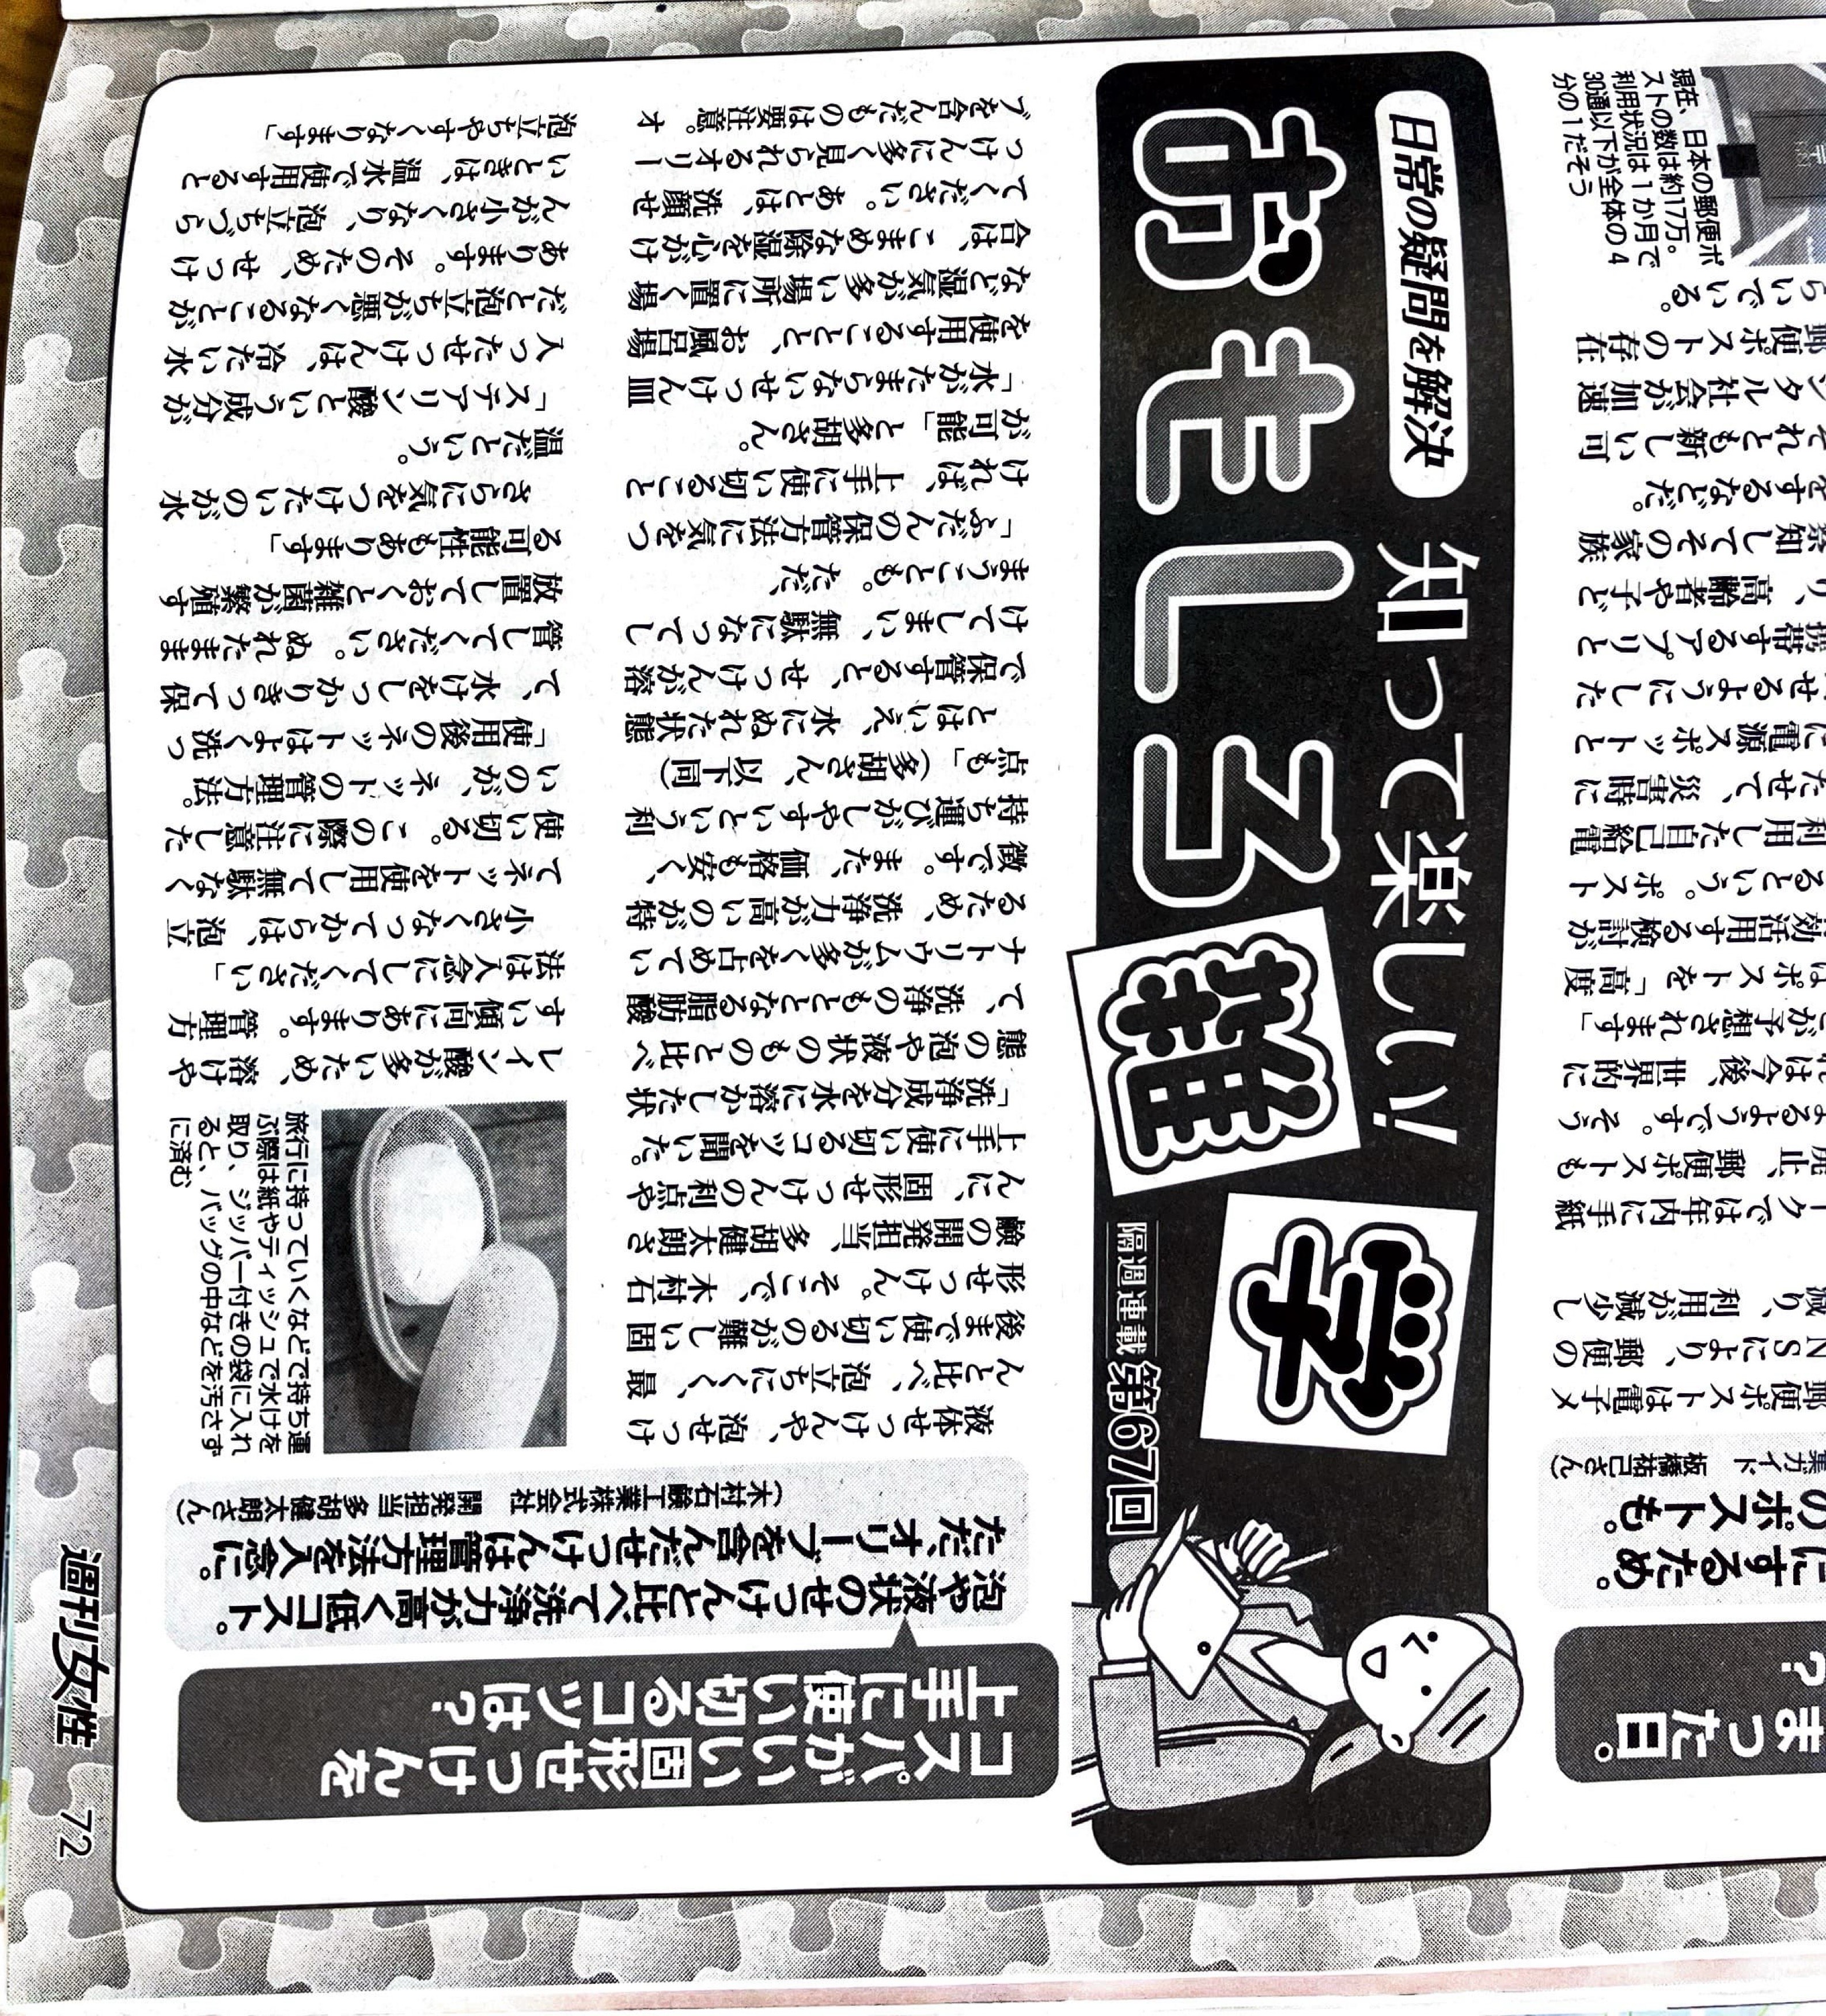 日常の疑問を解決
知って楽しい！
おもしろ雑学
隔週連載 第67回
コスパがいい固形せっけんを
上手に使い切るコツは？
泡や液状のせっけんと比べて洗浄力が高く低コスト。
ただ、オリーブを含んだせっけんは管理方法を入念に。
（木村石鹸工業株式会社　開発担当 多胡健太朗さん）
液体せっけんや、泡せっけ
んと比べ、泡立ちにくく、最
後まで使い切るのが難しい固
形せっけん。そこで、木村石
鹸の開発担当、多胡健太朗さ
んに、固形せっけんの利点や
上手に使い切るコツを聞いた。
「洗浄成分を水に溶かした状
態の泡や液状のものと比べ
て、洗浄のもととなる脂肪酸
ナトリウムが多くを占めてい
るため、洗浄力が高いのが特
徴です。また、価格も安く、
持ち運びがしやすいという利
点も」（多胡さん、以下同）
とはいえ、水にぬれた状態
で保管すると、せっけんが溶
けてしまい、無駄になってし
まうことも。ただ、
「ふだんの保管方法に気をつ
ければ、上手に使い切ること
が可能」と多胡さん。
「水がたまらないせっけん皿
を使用することと、お風呂場
など湿気が多い場所に置く場
合は、こまめな除湿を心がけ
てください。あとは、洗顔せ
っけんに多く見られるオリー
ブを含んだものは要注意。オ
レイン酸が多いため、溶けや
すい傾向にあります。管理方
法は入念にしてください」
小さくなってからは、泡立
てネットを使用して無駄なく
使い切る。この際に注意した
いのが、ネットの管理方法。
「使用後のネットはよく洗っ
て、水けをしっかりきって保
管してください。ぬれたまま
放置しておくと雑菌が繁殖す
る可能性もあります」
さらに気をつけたいのが水
温だという。
「ステアリン酸という成分が
入ったせっけんは、冷たい水
だと泡立ちが悪くなることが
あります。そのため、せっけ
んが小さくなり、泡立ちづら
いときは、温水で使用すると
泡立ちやすくなります」
旅行に持っていくなどで持ち運
ぶ際は紙やティッシュで水けを
取り、ジッパー付きの袋に入れ
ると、バッグの中などを汚さず
に済む
週刊女性 72
まった日。
？
にするため。
のポストも。
ガイド　板橋祐己さん）
郵便ポストは電子メ
NSにより、郵便の
減り、利用が減少し
ークでは年内に手紙
廃止、郵便ポストも
なるようです。そう
は今後、世界的に
が予想されます」
はポストを「高度
効活用する検討が
るという。ポスト
利用した自己給電
たせて、災害時に
に電源スポットと
せるようにした
携帯するアプリと
り、高齢者や子ど
察知してその家族
をするなどだ。
それとも新しい可
ジタル社会が加速
郵便ポストの存在
らいでいる。
現在、日本の郵便ポ
ストの数は約17万。
利用状況は１か月で
30通以下が全体の４
分の１だそう